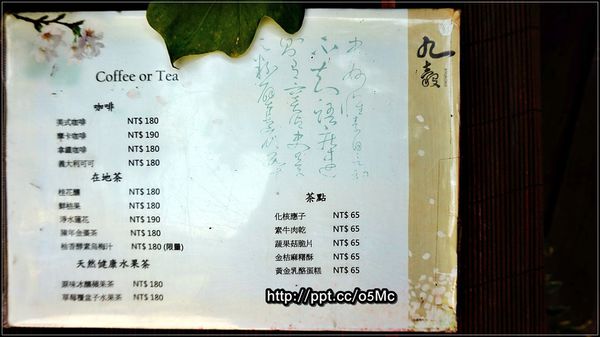 Coffee or Tea
咖啡
美式咖啡 NT$ 180
摩卡咖啡 NT$ 190
拿鐵咖啡 NT$ 180
義大利可可 NT$ 180
在地茶
桂花釀 NT$ 180
鮮桔果 NT$ 180
淨水蓮花 NT$ 190
陳年金棗茶 NT$ 180
柚香酵素烏梅汁 NT$ 180 (限量)
天然健康水果茶
原味冰釀蘋果茶 NT$ 180
草莓覆盆子水果茶 NT$ 180
茶點
化核應子 NT$ 65
素牛肉乾 NT$ 65
蔬果菇脆片 NT$ 65
金桔麻糬酥 NT$ 65
黃金乳酪蛋糕 NT$ 65
九穀
http://ppt.cc/o5Mc